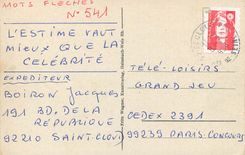 MOTS FLECHES
N° 541
L'ESTIME VAUT
MIEUX QUE LA
CELÉBRITÉ
EXPEDITEUR
BOIRON Jacques
191 BD. DE LA
REPUBLIQUE
92210 SAINT-CLOUD
TÉLÉ-LOISIRS
GRAND JEU
CEDEX 2391
99239 PARIS-CONCOURS